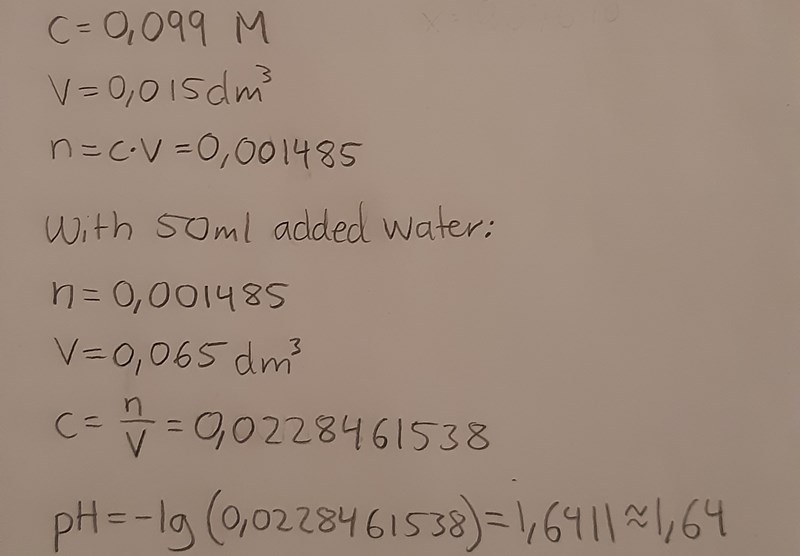 C=0,099 M
V=0,015dm³
n=c·V=0,001485
With 50ml added water:
n=0,001485
V=0,065 dm³
C=n/V=0,0228461538
pH=-lg(0,0228461538)=1,6411≈1,64